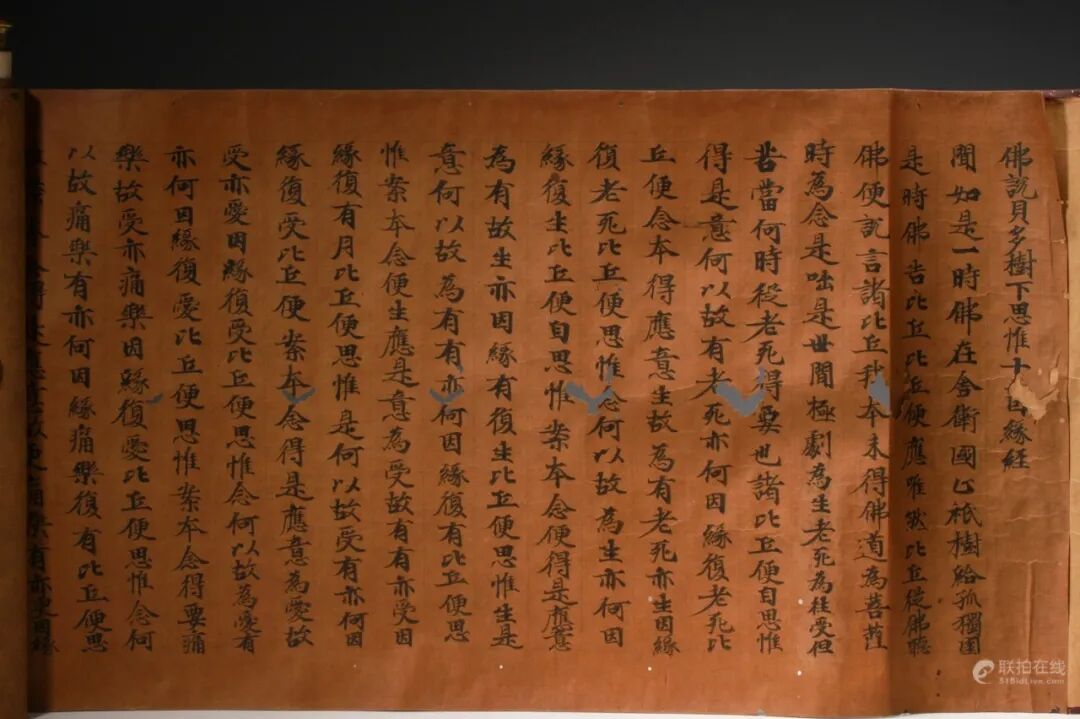 佛説貝多樹下思惟十因緣経
聞如是一時佛在舎衛國心祇樹給孤獨園
是時佛告比丘比丘便應唯然比丘從佛聴
佛便説言諸比丘我本未得佛道為菩薩
時為念是咄是世間極劇為生老死為往受但
當何時從老死得要世諸比丘便自思惟
得是意何以故有老死亦何因緣復老死比
丘便念本得應意生故為有老死亦生因緣
復老死比丘便思惟念何以故為生亦何因
緣復生比丘便自思惟案本念便得是應意
為有故生亦因緣有復生比丘便思惟生是
意何以故為有有亦何因緣復有比丘便思
惟案本念便生應是意為受故有有亦受因
緣復有月比丘便思惟是何以故受有亦何因
緣復受比丘便案本念得是應意為愛故
受亦愛因緣復受比丘便思惟念何以故為愛有
亦何因緣復愛比丘便思惟案本念得要痛
樂故受亦痛樂因緣復愛比丘便思惟念何
以故痛樂有亦何因緣痛樂復有比丘便思
痛樂有亦更因緣
联拍在线
51BidLive.com